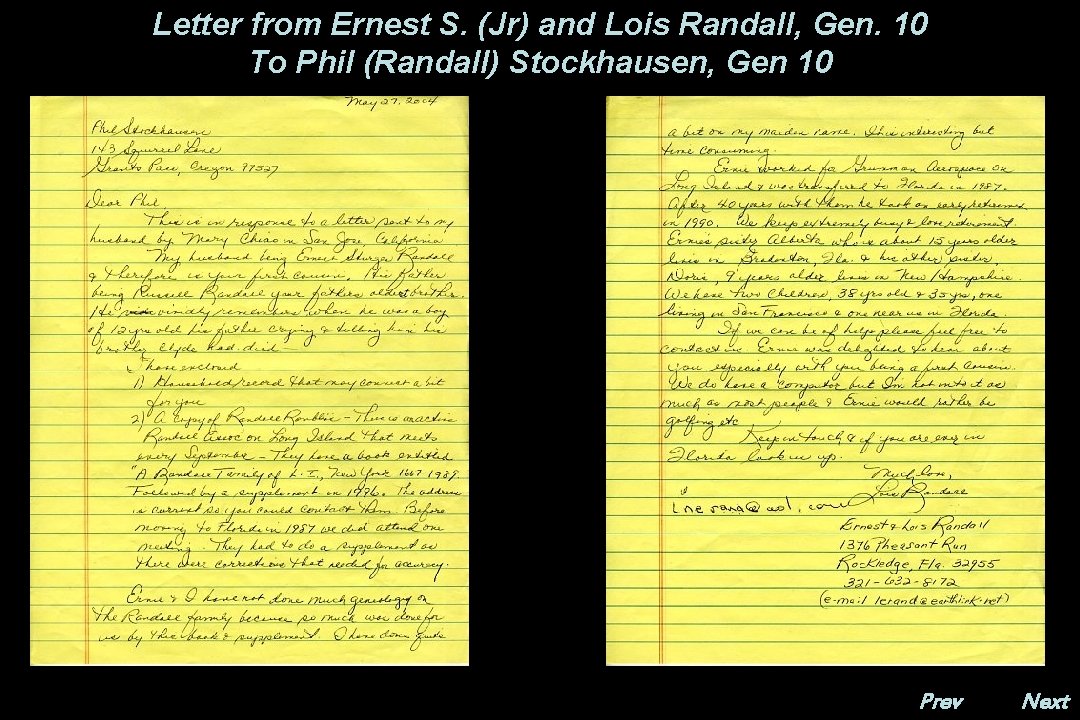 Letter from Ernest S. (Jr) and Lois Randall, Gen. 10
To Phil (Randall) Stockhausen, Gen 10
May 27, 2004
Phil Stockhausen
143 Squirrel Lane
Grants Pass, Oregon 97527
Dear Phil,
This is in response to a letter sent to my
husband by Mary Chiso in San Jose, California
My husband being Ernest Sturges Randall
& therefore is your first cousin. His father
being Russell Randall your fathers oldest brother.
He vividly remembers when he was a boy
of 12 yrs old his father crying & telling him his
brother Clyde had died —
I have enclosed
1) Household record that may connect a bit
for you
2) A copy of Randall Ramblin - This is an active
Randall Assoc on Long Island that meets
every September - They have a book entitled
"A Randall Family of L.I., New York 1667 1989.
Followed by a supplement in 1996. The address
is current so you could contact them. Before
moving to Florida in 1987 we did attend one
meeting. They had to do a supplement as
there were corrections that needed for accuracy.
Ernie & I have not done much genealogy on
the Randall family because so much was done for
us by this book & supplement. I have done quite
a bit on my maiden name. It is interesting but
time consuming.
Ernie worked for Grumman Aerospace on
Long Island & was transfered to Florida in 1987.
After 40 years with them he took an early retirement
in 1990. We keep extremely busy & love retirement.
Ernie's sister Alberta who is about 15 years older
lives in Bradenton, Fla. & his other sister,
Doris, 9 years older lives in New Hampshire.
We have two children, 38 yrs old & 35 yrs, one
living in San Francisco & one near us in Florida.
If we can be of help please feel free to
contact us. Ernie was delighted to hear about
you especially with you being a first cousin.
We do have a computer but I'm not into it as
much as most people & Ernie would rather be
golfing etc
Keep in touch & if you are ever in
Florida look us up.
Much love,
Lois Randall
Ernest & Lois Randall
1376 Pheasant Run
Rockledge, Fla. 32955
321-632-8172
(e-mail lerand@earthlink.net)
Prev Next